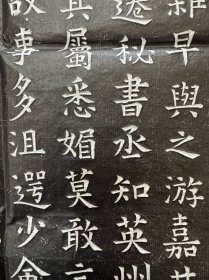 雜早與之游嘉
遷秘書丞知英州
其屬悉媚莫敢言
故事多沮選少